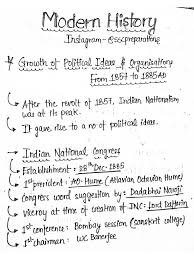 Modern History
Instagram - @sscpreparationn
* Growth of Political Ideas & Organisations
From 1857 to 1885AD
→ After the revolt of 1857, Indian Nationalism
was at its peak.
→ It gave rise to a no of political pattern.
* Indian National Congress
→ Establishment: 28th Dec-1885
→ 1st president: AO. Hume (Atlavian Octavian Hume)
→ Congress word suggestion by: Dadabhai Naroji
→ viceroy at time of creation of INC: Lord Dufferin
→ 1st conference: Bombay session (sanskrit college)
→ 1st chairman: WC Banerjee